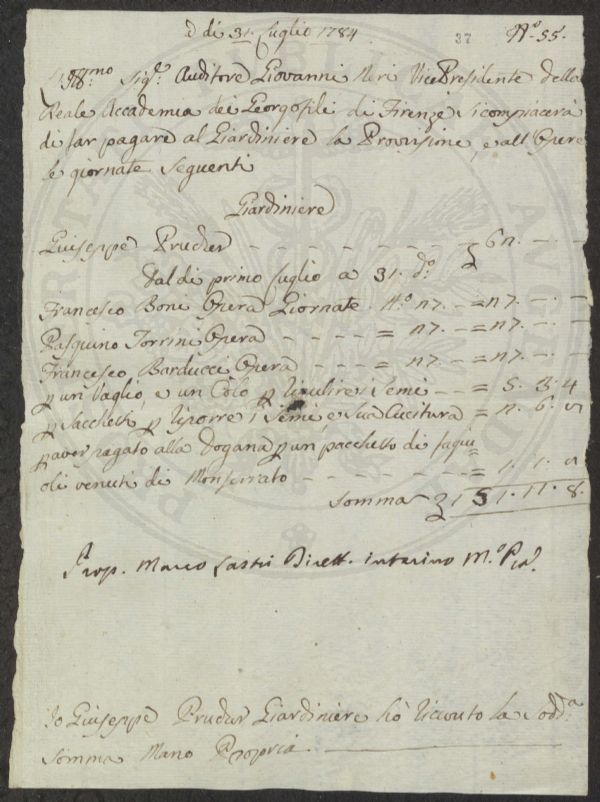 A di 31. Luglio 1784.
37
N.º 55.
Ill.mo Sig.e Auditore Giovanni Neri Vice Presidente della
Reale Accademia dei Georgofili di Firenze si compiacerà
di far pagare al Giardiniere la Provisione, e all'Opere
le giornate seguenti
Giardiniere
Giuseppe Prucher
dal di primo Luglio a 31. d.º
Francesco Boni Opera Giornate N.º 27. = 27.
Pasquino Torrini Opera = 27. = 27.
Francesco Barducci Opera = 27. = 27.
p un Vaglio, e un Colo p ripulire i Semi = 5. 3. 4
p Sacchetti p riporre i Semi, e sua Cucitura = 6.
p aver pagato alla Dogana p un pacchetto di fagiu=
oli venuti di Monferrato = 1. 1.
Somma 151. 11. 8.
Prop. Marco Lastri Dirett. interino M.º P.a
Io Giuseppe Prucher Giardiniere hò riceuto la sodd.a
somma Mano Propria
PROSPERITATI PUBLICAE AUGENDAE